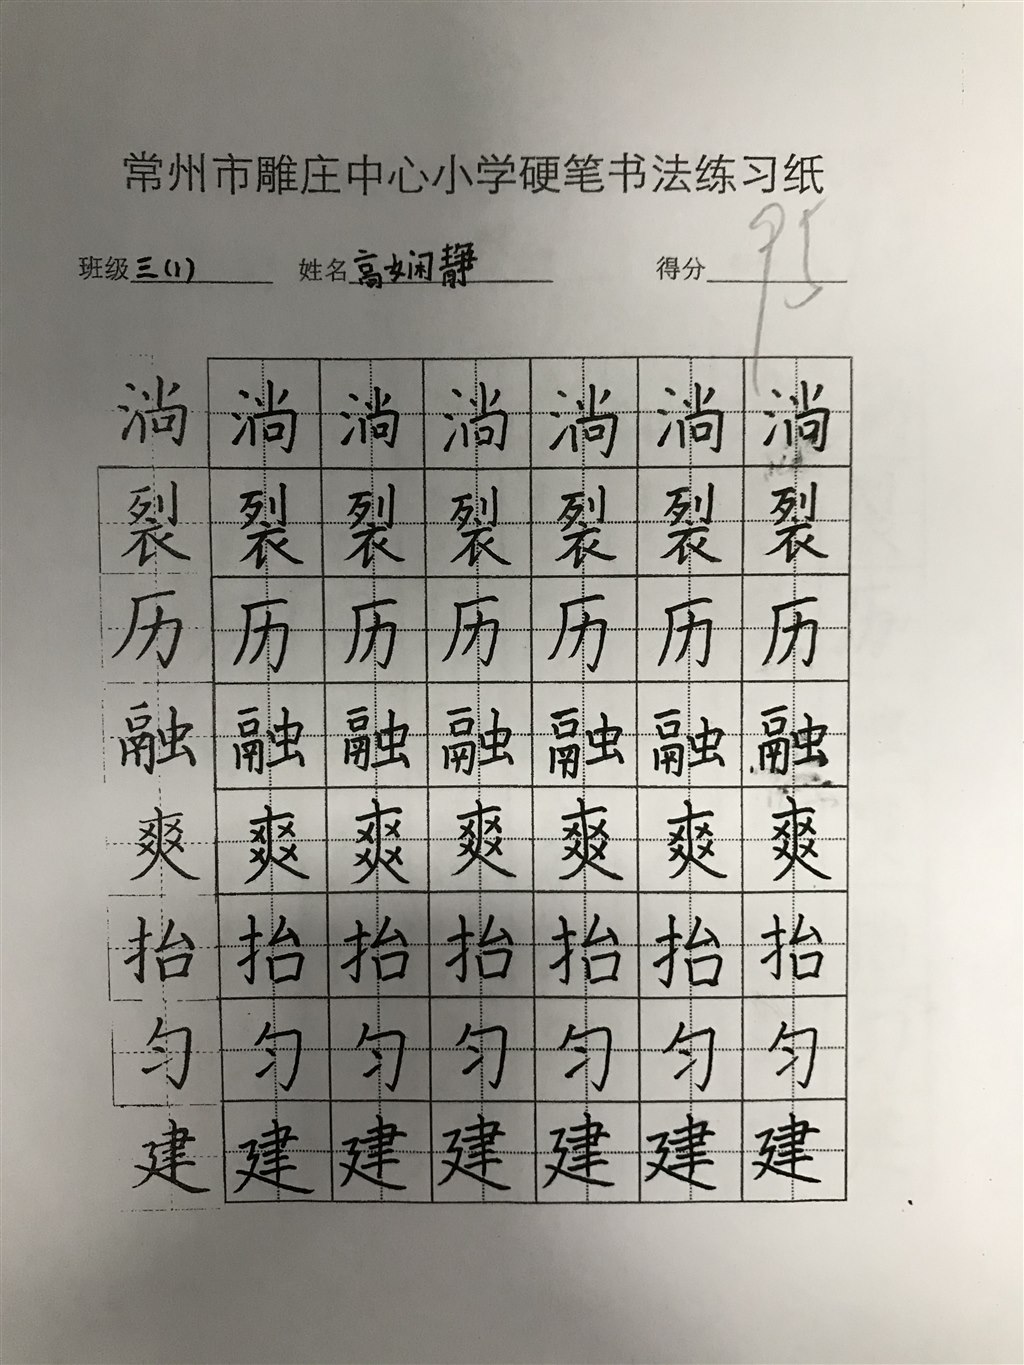 常州市雕庄中心小学硬笔书法练习纸
班级三(1) 姓名高娴静 得分95
淌淌淌淌淌淌淌
裂裂裂裂裂裂裂
历历历历历历历
融融融融融融融
爽爽爽爽爽爽爽
抬抬抬抬抬抬抬
匀匀匀匀匀匀匀
建建建建建建建